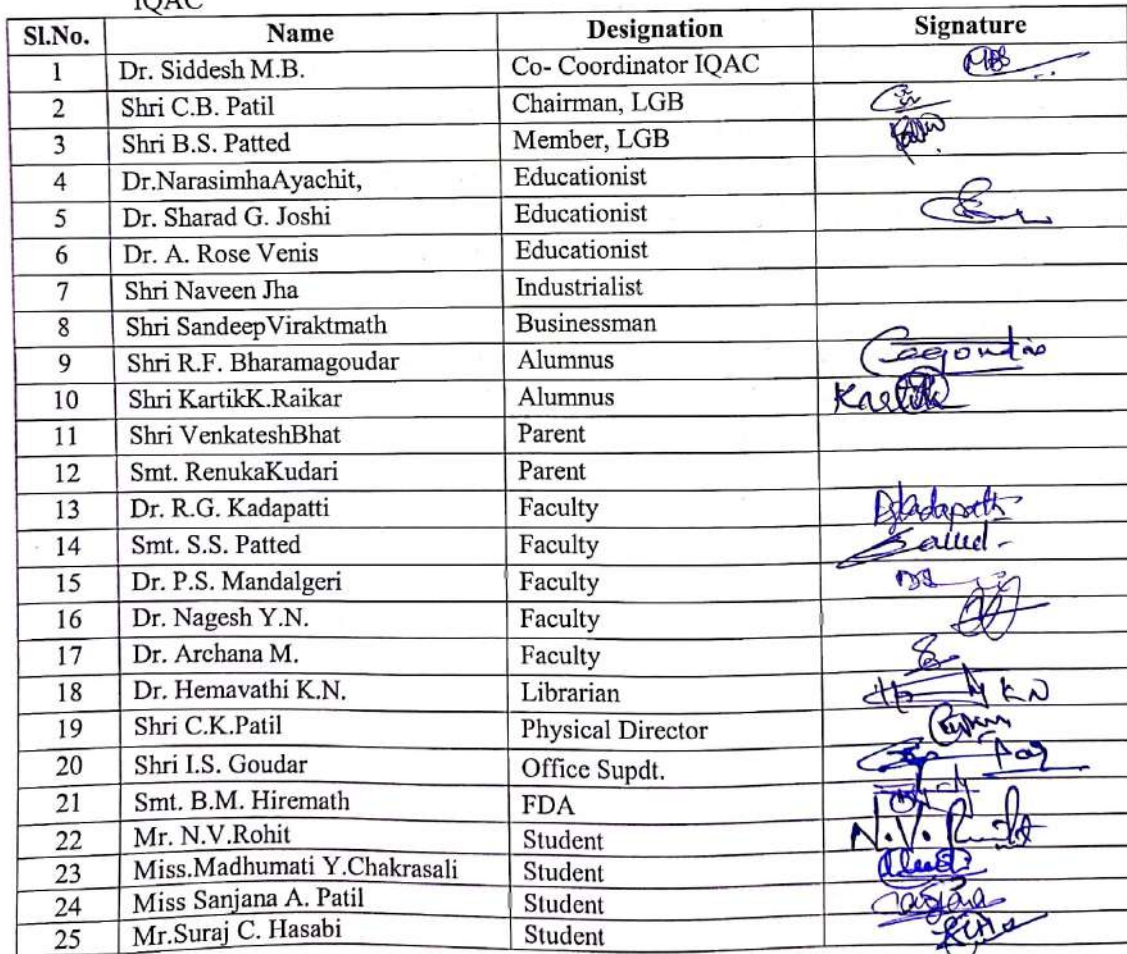 IQAC
Sl.No. Name Designation Signature
1 Dr. Siddesh M.B. Co- Coordinator IQAC
2 Shri C.B. Patil Chairman, LGB
3 Shri B.S. Patted Member, LGB
4 Dr.NarasimhaAyachit, Educationist
5 Dr. Sharad G. Joshi Educationist
6 Dr. A. Rose Venis Educationist
7 Shri Naveen Jha Industrialist
8 Shri SandeepViraktmath Businessman
9 Shri R.F. Bharamagoudar Alumnus
10 Shri KartikK.Raikar Alumnus Kartik
11 Shri VenkateshBhat Parent
12 Smt. RenukaKudari Parent
13 Dr. R.G. Kadapatti Faculty
14 Smt. S.S. Patted Faculty
15 Dr. P.S. Mandalgeri Faculty
16 Dr. Nagesh Y.N. Faculty
17 Dr. Archana M. Faculty
18 Dr. Hemavathi K.N. Librarian
19 Shri C.K.Patil Physical Director
20 Shri I.S. Goudar Office Supdt.
21 Smt. B.M. Hiremath FDA
22 Mr. N.V.Rohit Student N.V.
23 Miss.Madhumati Y.Chakrasali Student
24 Miss Sanjana A. Patil Student
25 Mr.Suraj C. Hasabi Student